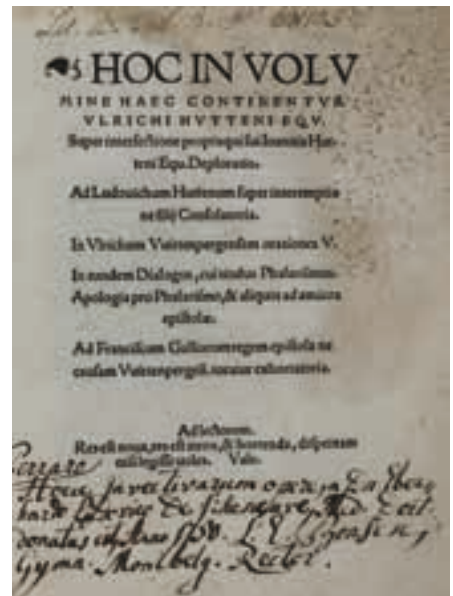 HOC IN VOLV
MINE HAEC CONTINENTVR
VLRICHI HVTTENI EQV.
Super interfectione propinqui sui Ioannis Hut-
teni Equ. Deploratio.
Ad Ludouichum Huttenum super interemptio
ne filij Consolatoria.
In Vlrichum Vuirtenpergensem orationes V.
In eundem Dialogus, cui titulus Phalarismus.
Apologia pro Phalarismo, & aliquot ad amicos
epistolæ.
Ad Franciscum Galliarum regem epistola ne
causam Vuirtenpergen. tueatur exhortatoria.
Ad lectorem.
Res est noua, res est atrox, & horrenda, dispeream
nisi legisse uoles. Vale.
Hoc Invectivarum
donatus
Gymn. Montbelg. Rector.